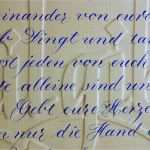 einander von eure
Singt und ta
jeden von euch
alleine sind un
Gebt eure Herze
nur die Hand